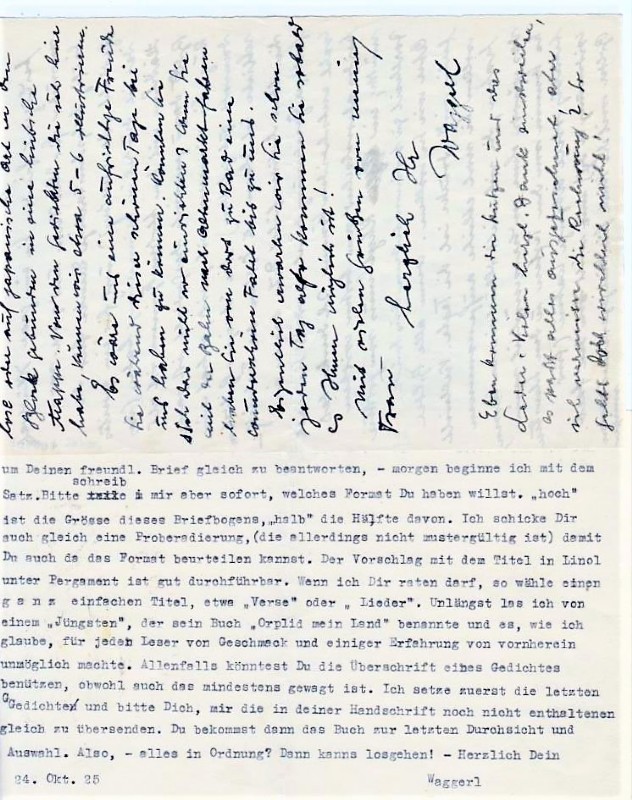 lose oder auf japanische Art in den
Block gebunden in eine hübsche
Mappe. Von den Gedichten, die ich hier
habe, können wir etwa 5-6 illustrieren.
Es wäre uns eine aufrichtige Freude
Sie während dieser schönen Tage bei
uns haben zu können. Könnten Sie
sich das nicht so einrichten? Wenn Sie
mit der Bahn nach Altenmarkt fahren
haben Sie von dort zu Rad eine
wunderschöne Fahrt bis zu uns.
Eigentlich erwarten wir Sie schon
jeden Tag also kommen Sie sobald
es Ihnen möglich ist!
Mit vielen Grüßen von meiner
Frau
herzlich Ihr
Waggerl
Eben kommen die und das
Leder. Vielen herzl. Dank einstweilen,
es paßt alles ausgezeichnet, aber
die Rechnung? So
geht nicht!
um Deinen freundl. Brief gleich zu beantworten, - morgen beginne ich mit dem
schreib
Satz.Bitte mir aber sofort, welches Format Du haben willst. „hoch"
ist die Grösse dieses Briefbogens,„halb" die Hälfte davon. Ich schicke Dir
auch gleich eine Proberadierung,(die allerdings nicht mustergültig ist) damit
Du auch da das Format beurteilen kannst. Der Vorschlag mit dem Titel in Linol
unter Pergament ist gut durchführbar. Wenn ich Dir raten darf, so wähle einen
g a n z einfachen Titel, etwa „Verse" oder „ Lieder". Unlängst las ich von
einem „Jüngsten", der sein Buch „Orplid mein Land" benannte und es, wie ich
glaube, für jeden Leser von Geschmack und einiger Erfahrung von vornherein
unmöglich machte. Allenfalls könntest Du die Überschrift eines Gedichtes
benützen, obwohl auch das mindestens gewagt ist. Ich setze zuerst die letzten
Gedichte und bitte Dich, mir die in deiner Handschrift noch nicht enthaltenen
gleich zu übersenden. Du bekommst dann das Buch zur letzten Durchsicht und
Auswahl. Also, - alles in Ordnung? Dann kanns losgehen! - Herzlich Dein
24. Okt. 25 Waggerl